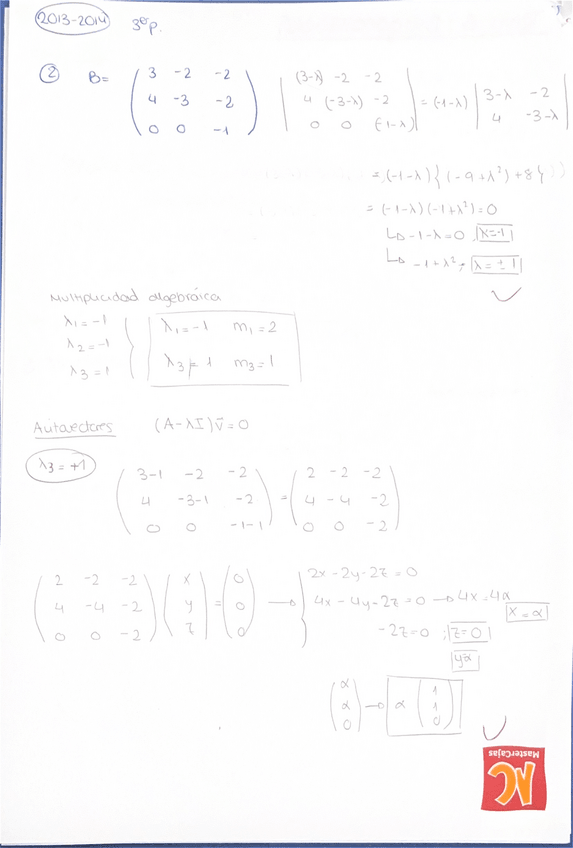 2013-2014 3er p.
② B= ( 3 -2 -2 ; 4 -3 -2 ; 0 0 -1 ) | (3-λ) -2 -2 ; 4 (-3-λ) -2 ; 0 0 (-1-λ) | = (-1-λ) | 3-λ -2 ; 4 -3-λ |
= (-1-λ) { (-9+λ²) +8 }
= (-1-λ) (-1+λ²) = 0
↳ -1-λ=0 λ=-1
↳ -1+λ²; λ = ±1
Multiplicidad algebráica
λ₁ = -1
λ₂ = -1
λ₃ = 1
λ₁ = -1 m₁ = 2
λ₃ = 1 m₃ = 1
Autovectores (A-λI) v̄ = 0
λ₃ = +1
( 3-1 -2 -2 ; 4 -3-1 -2 ; 0 0 -1-1 ) = ( 2 -2 -2 ; 4 -4 -2 ; 0 0 -2 )
( 2 -2 -2 ; 4 -4 -2 ; 0 0 -2 ) ( x ; y ; z ) = ( 0 ; 0 ; 0 ) →
2x -2y -2z = 0
4x -4y -2z = 0 → 4x = 4α
x = α
-2z = 0 ; z = 0
y=α
( α ; α ; 0 ) → α ( 1 ; 1 ; 0 )
MasterCajas
MC